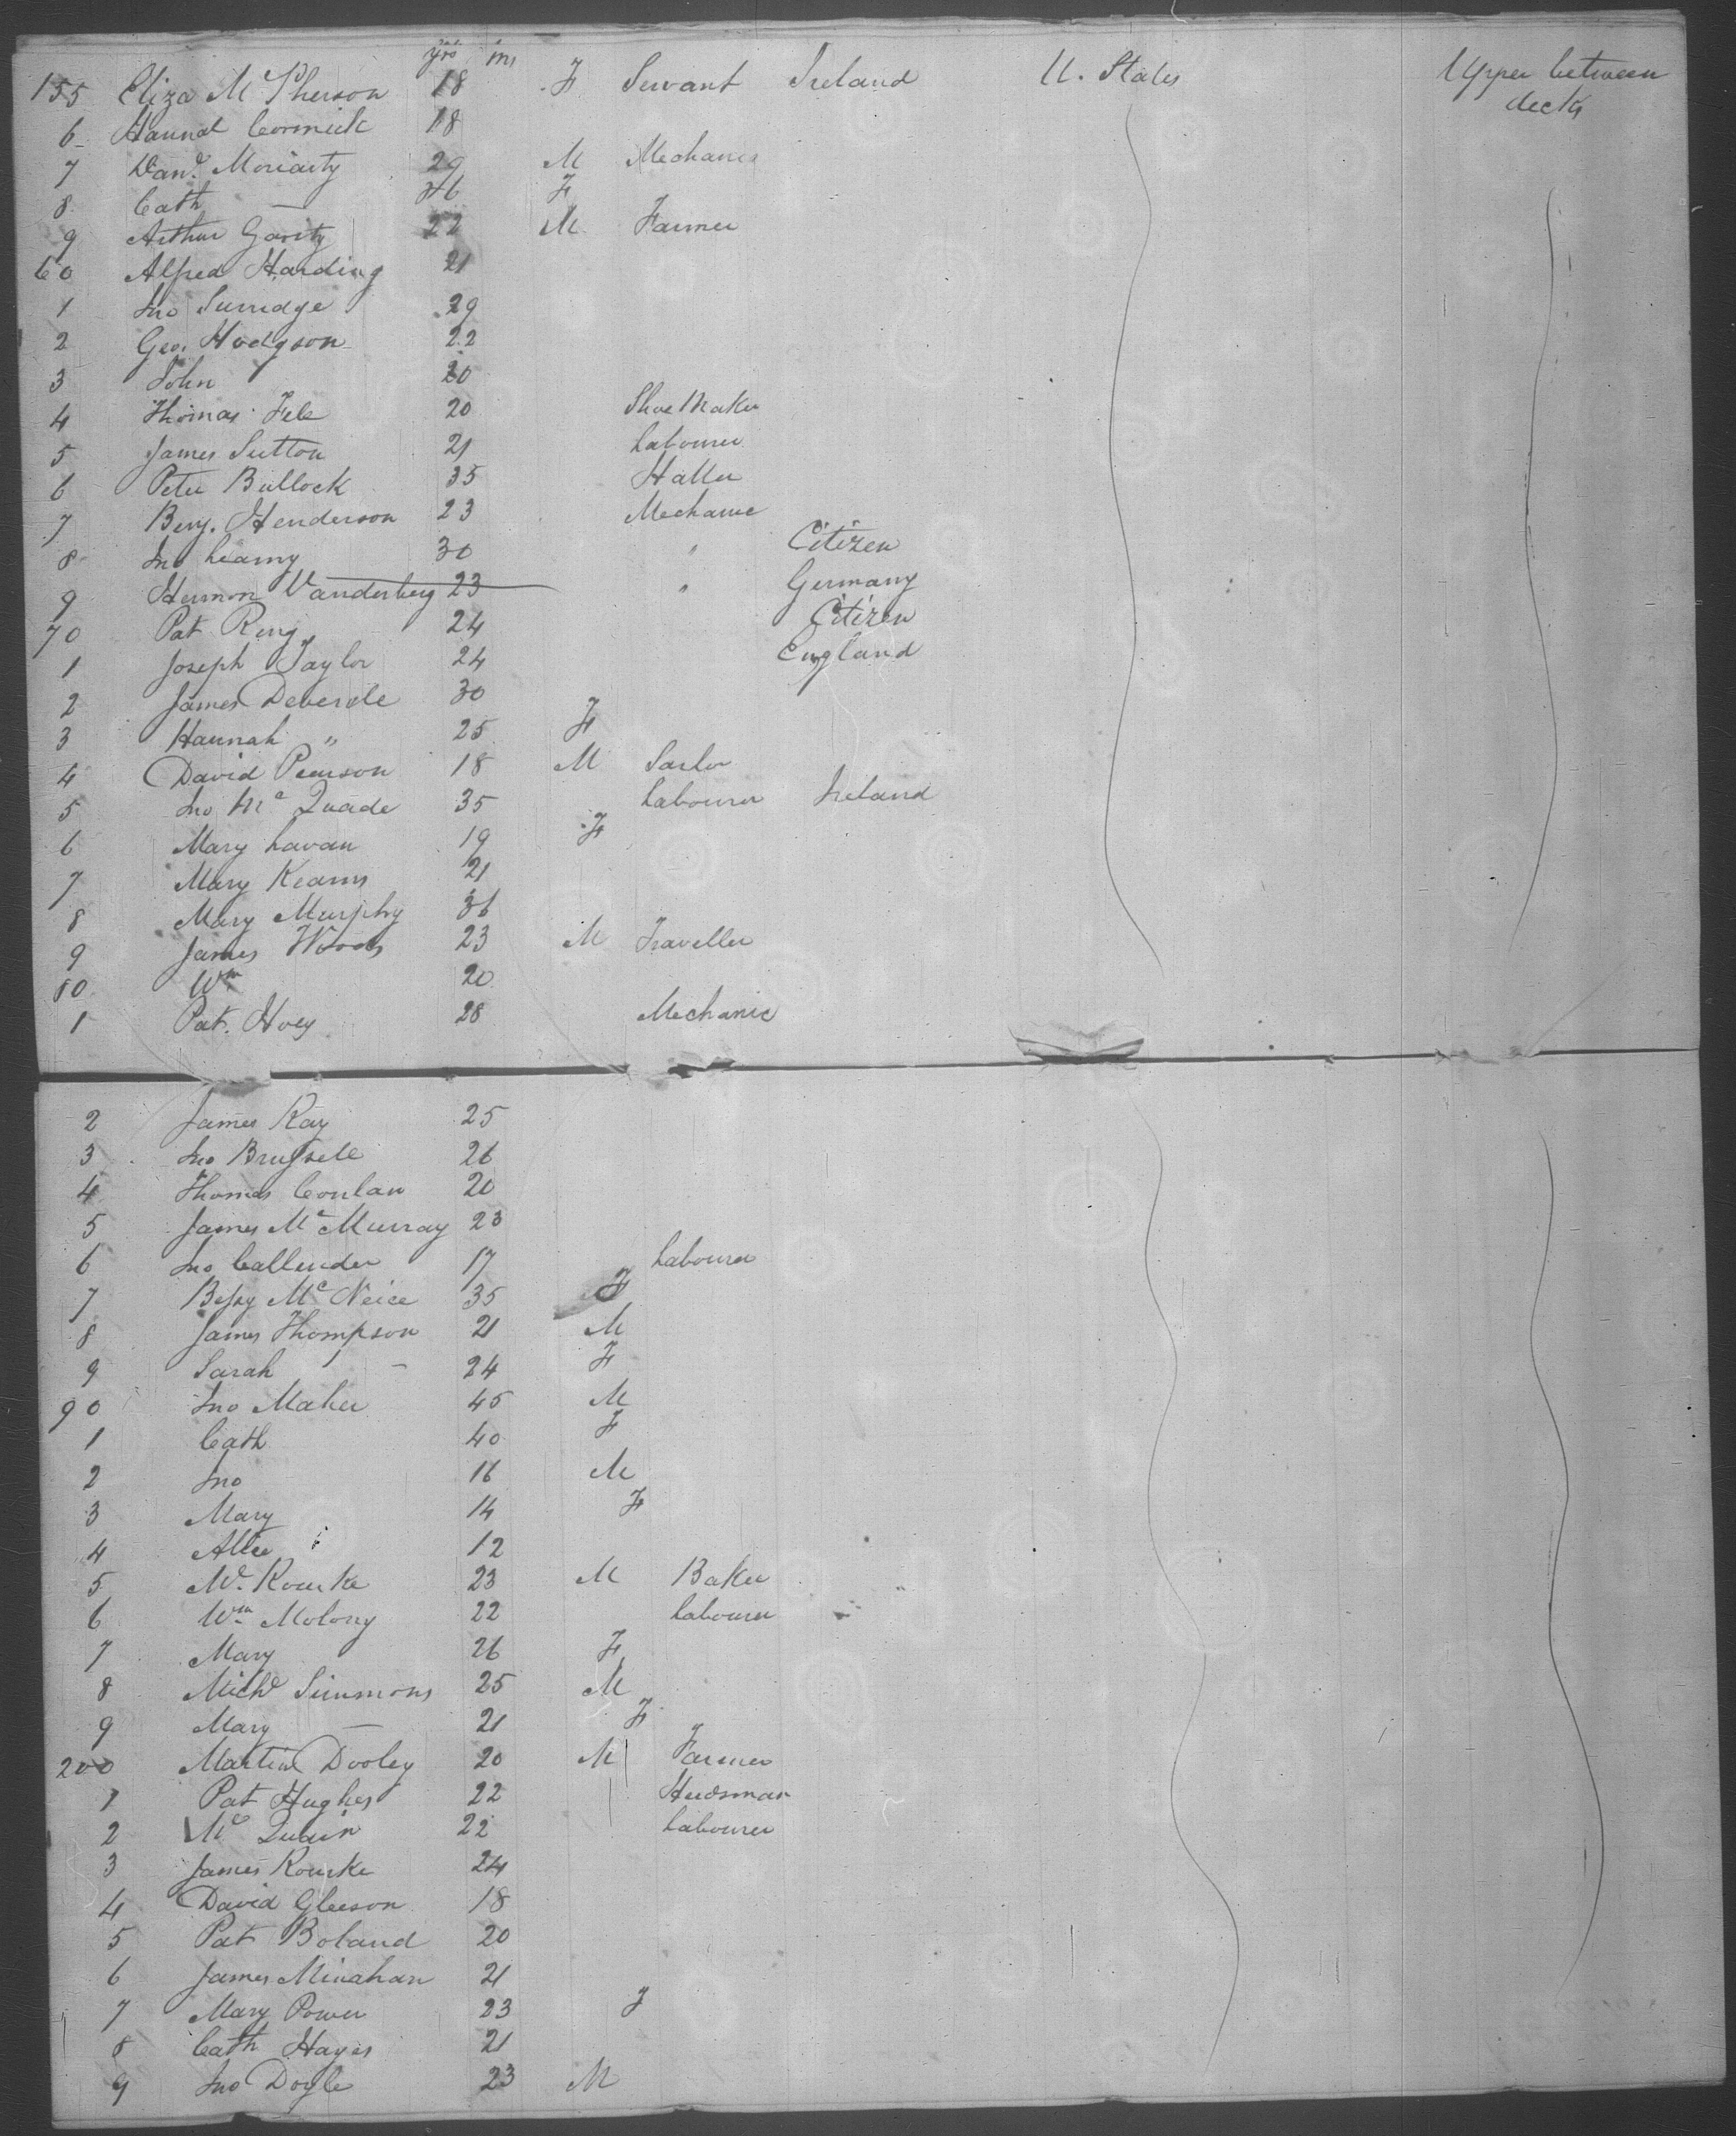 yrs ms
155 Eliza McPherson 18 F Servant Ireland U. States Upper between decks
6 Hannah Cormick 18
7 Danl. Moriarty 29 M Mechanic
8 Cath — 26 F
9 Arthur Garity 22 M Farmer
60 Alfred Harding 21
1 Jno Surridge 29
2 Geo. Hodgson 22
3 John 20
4 Thomas Fele 20 Shoe Maker
5 James Sutton 21 Labourer
6 Peter Bullock 35 Hatter
7 Benj. Henderson 23 Mechanic
8 Jno Leamy 30 " Citizen
9 Hermon Vanderberg 23 " Germany
70 Pat Ring 24 Citizen
1 Joseph Taylor 24 England
2 James Deverele 30
3 Hannah " 25 F
4 David Pearson 18 M Sailor
5 Jno Mc Quade 35 Labourer Ireland
6 Mary Lavan 19 F
7 Mary Kearns 21
8 Mary Murphy 36
9 James Woods 23 M Traveller
80 Wm 20
1 Pat. Hoey 28 Mechanic
2 James Ray 25
3 Jno 26
4 Thomas Conlan 20
5 James Mc Murray 23
6 Jno Callender 17 Labourer
7 Bessy Mc Neice 35 F
8 James Thompson 21 M
9 Sarah — 24 F
90 Jno Maher 45 M
1 Cath 40 F
2 Jno 16 M
3 Mary 14 F
4 Alice 12
5 Rourke 23 M Baker
6 Wm Molony 22 Labourer
7 Mary 26 F
8 Michl Simmons 25 M
9 Mary — 21 F
200 Martin Dooley 20 M Farmer
1 Pat Hughes 22 Herdsman
2 Quain 22 Labourer
3 James Rourke 24
4 David Gleeson 18
5 Pat Boland 20
6 James Minahan 21
7 Mary Power 23 F
8 Cath Hayes 21
9 Jno Doyle 23 M